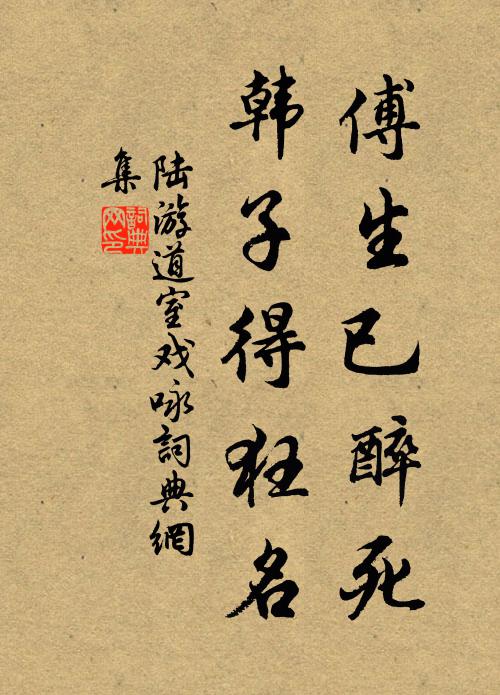 傅生已醉死
韩子得狂名
陆游道室戏咏詞典網
集
詞典
网印